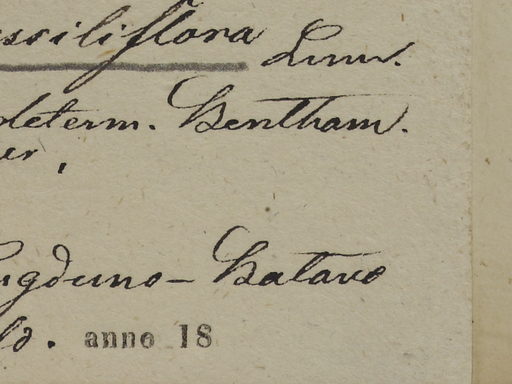 ssiliflora Linn.
determ. Bentham.
er,
ugduno-Batavo
ld. anno 18